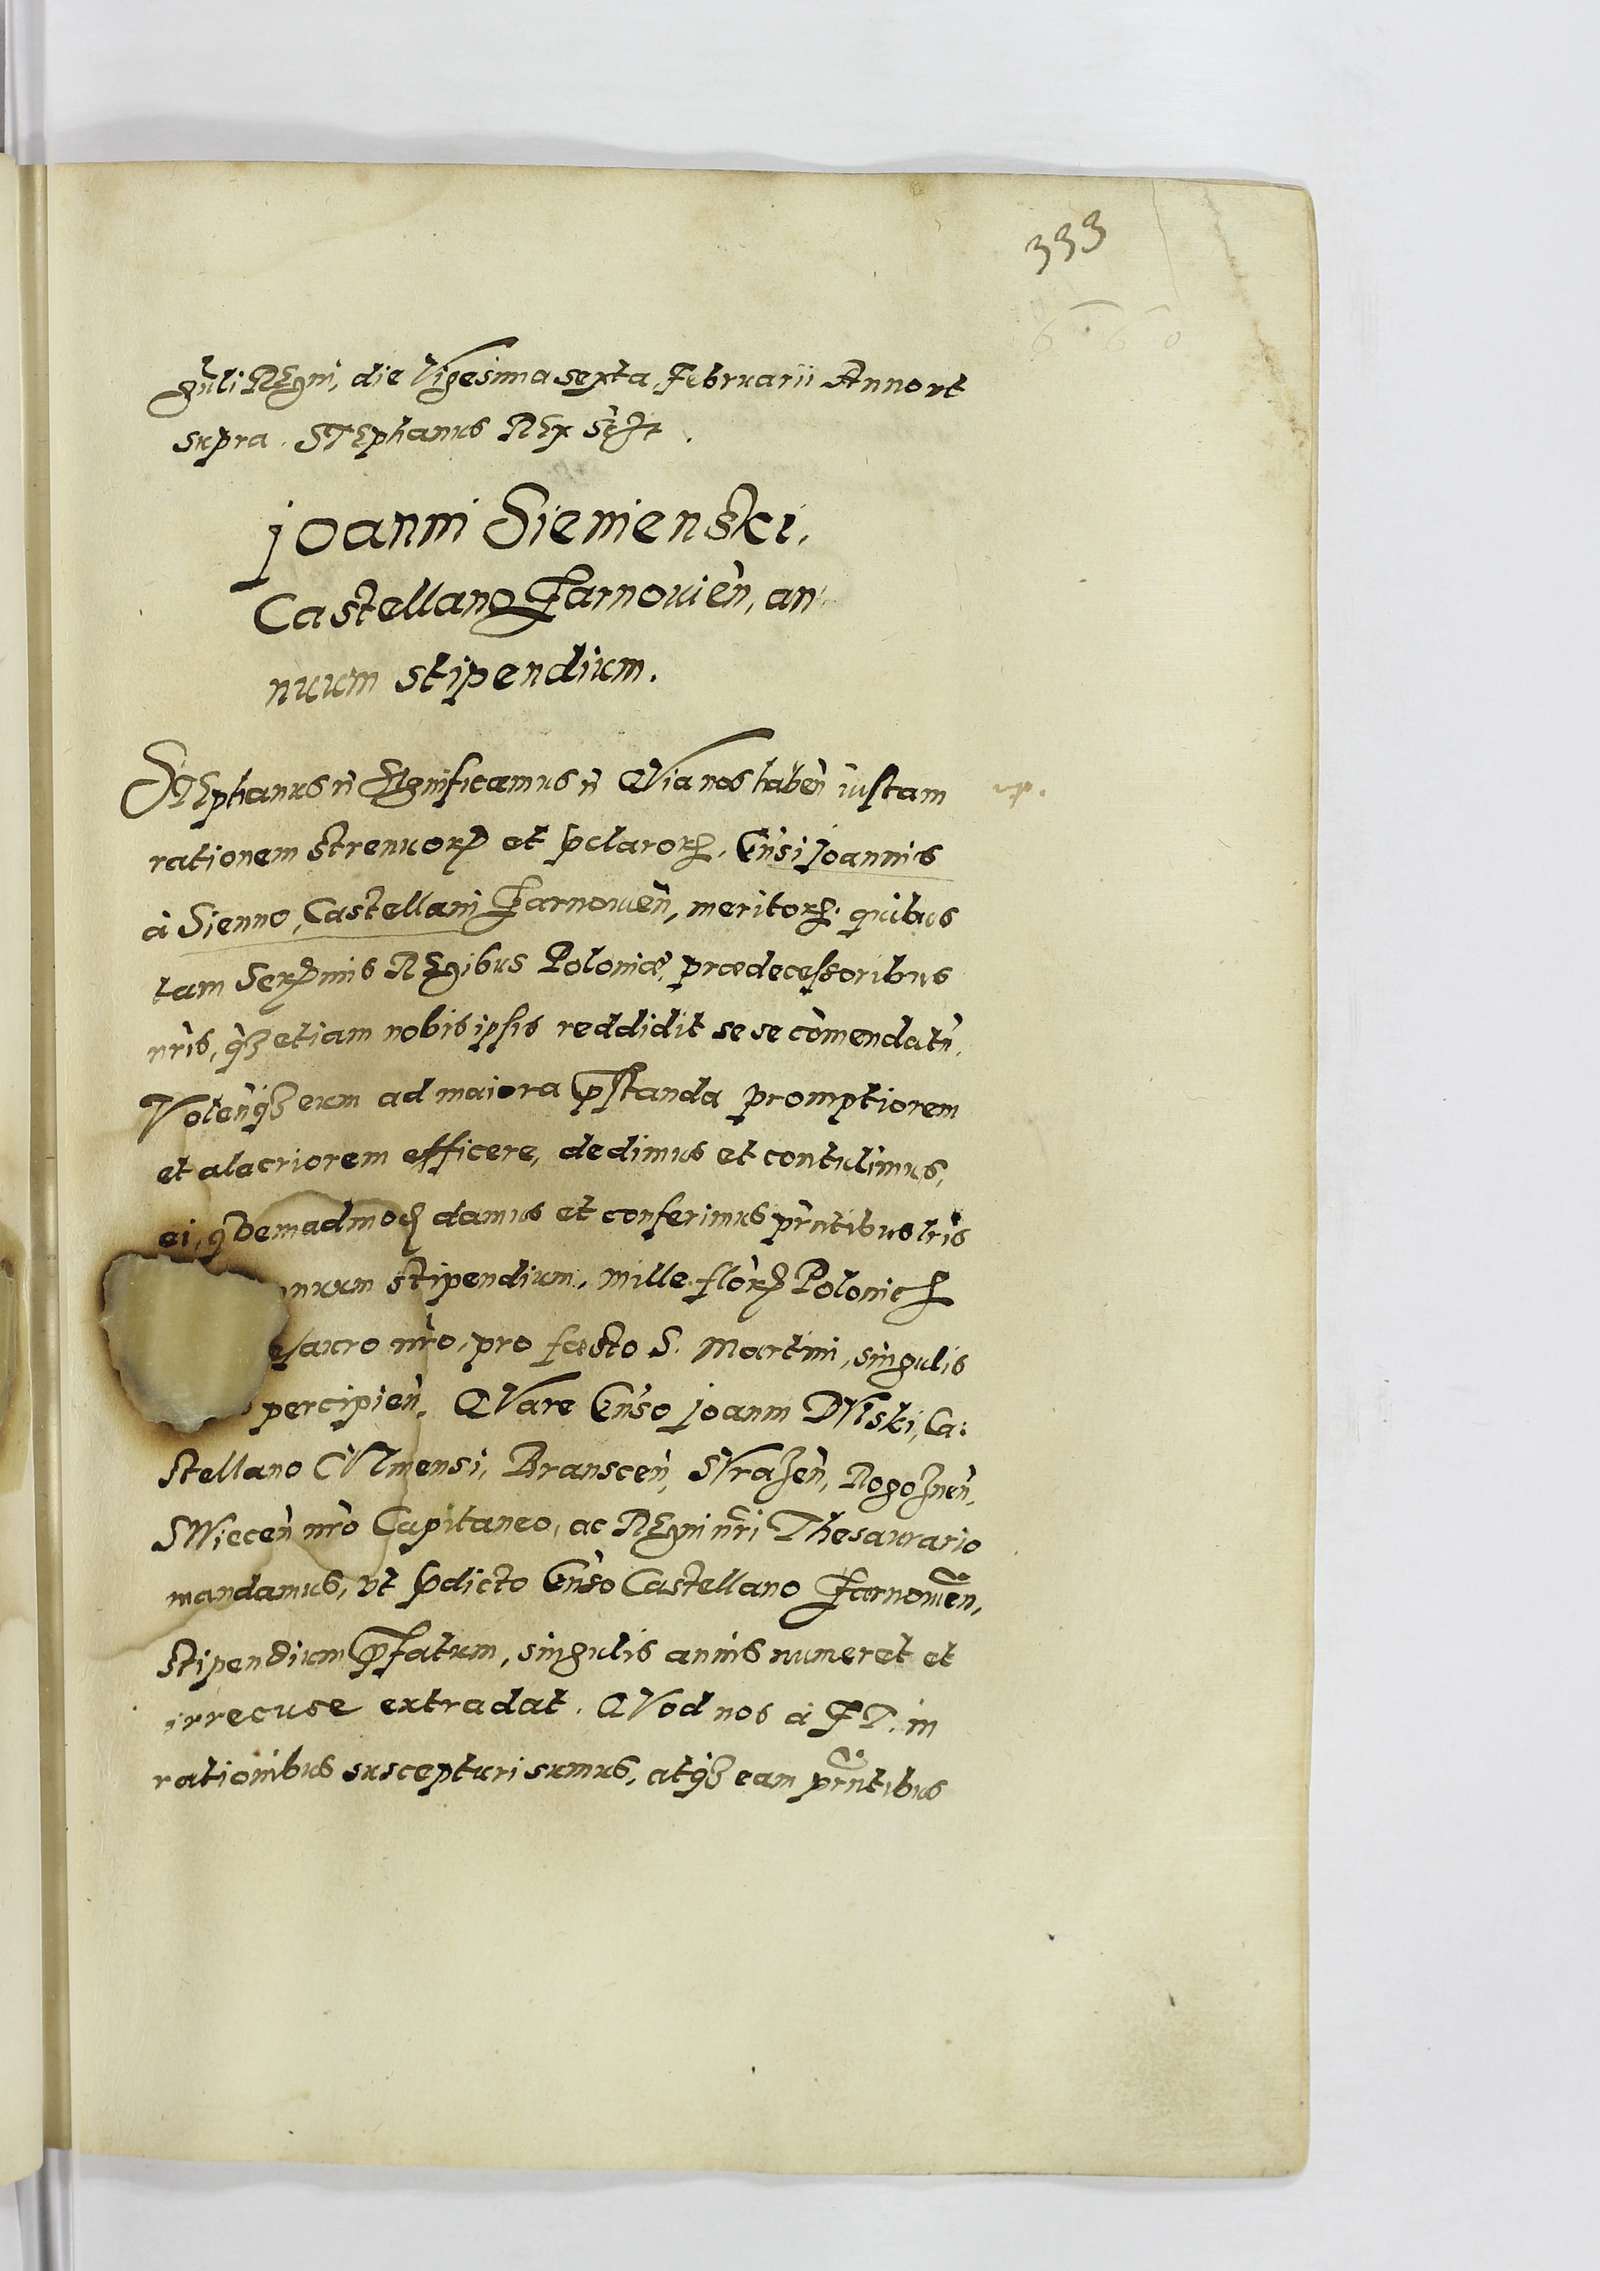 333
gnli REgni, die Vigesima sexta Februarii Anno vt
supra. STEphanus REx
Joanni Sienienski,
Castellano Żarnouien, an
nuum stipendium.
STEphanus Significamus QVia nos haben iustam
rationem strenuor et pclaror, Gnsi Joannis
à Sienno, Castellani Żarnouien, meritor. quibus
tam Sermis REgibus Poloniæ, prædecessoribus
nris, qz etiam nobis ipsis reddidit se se comendatu.
Volenqz eum ad maiora pstanda promptiorem
et alacriorem efficere, dedimus et contulimus,
ei, qVemadmod damus et conferimus pntibus lris
nnuum stipendium, mille flor Polonic
esauro nro, pro festo S. Martini, singulis
percipien. QVare Gnso Joanni DVlski, Ca:
stellano CVlmensi, Branscen, SVrazen, Rogoznen,
SWiecen nro Capitaneo, ac REgni nri Thesaurario
mandamus, vt pdicto Gnso Castellano Żarnouien,
stipendium pfatum, singulis annis numeret et
irrecuse extradat. QVod nos à FT. in
rationibus suscepturi sumus, atqz eam pntibus